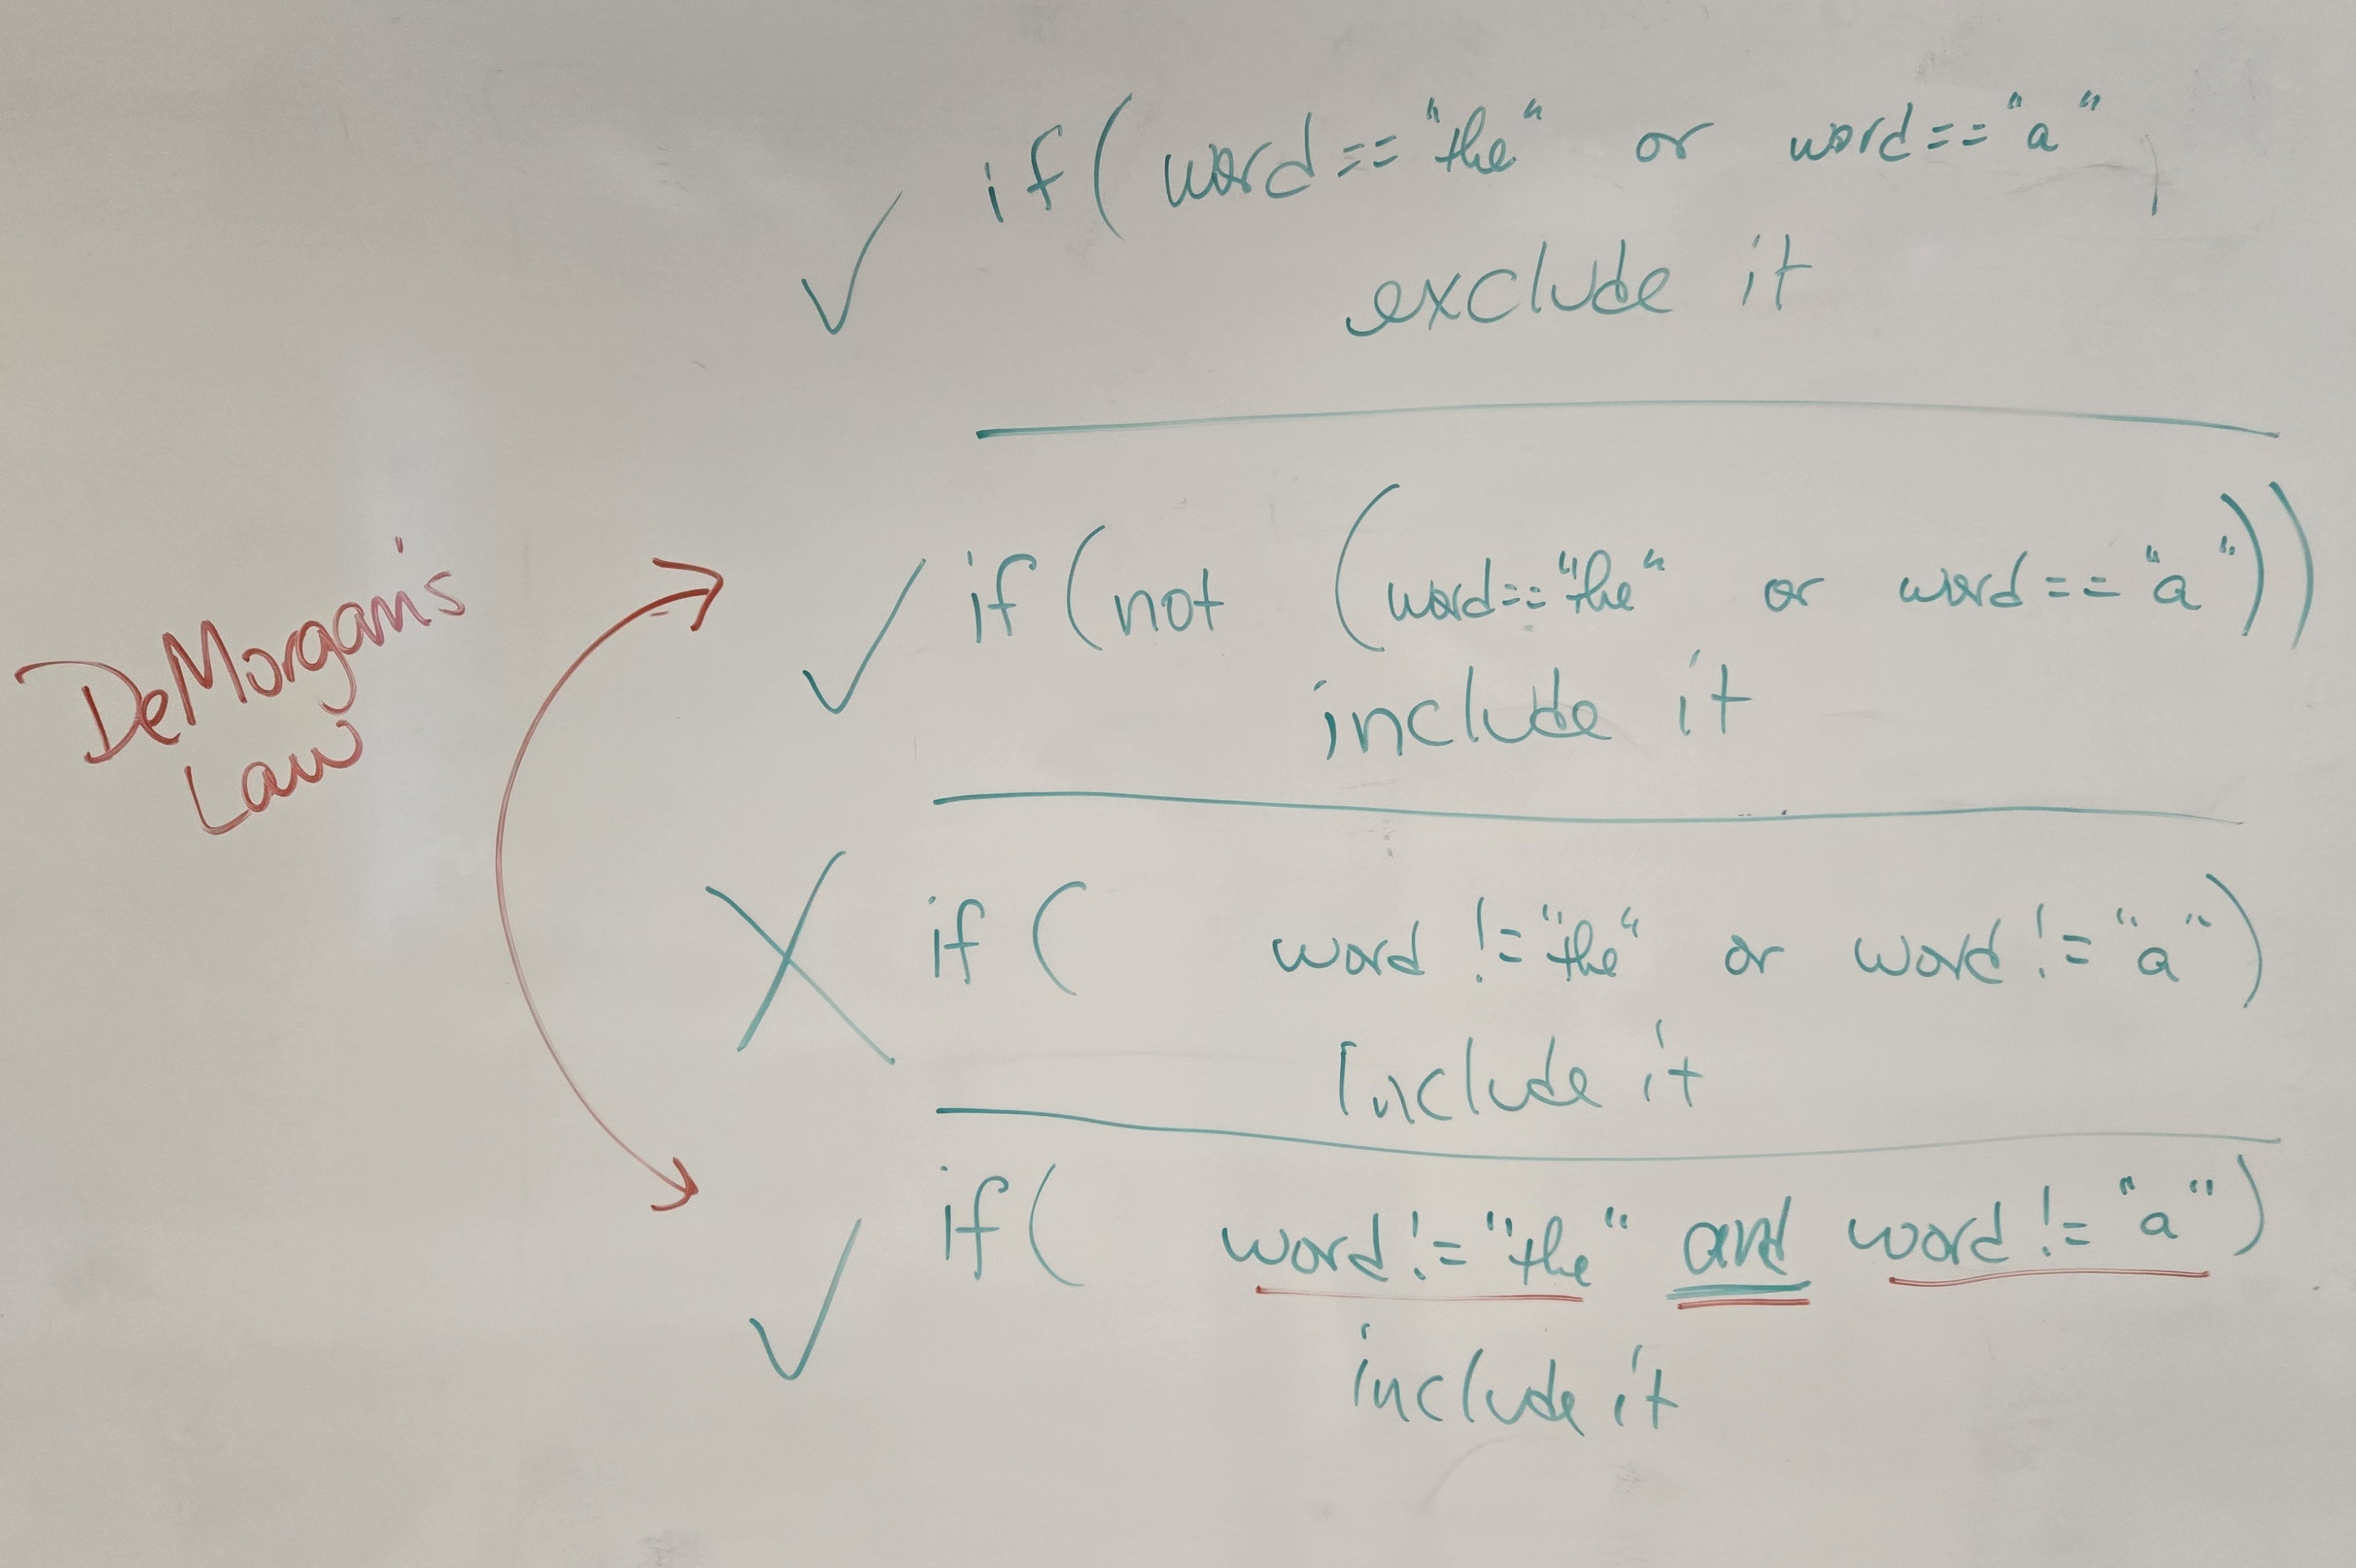 if( word=="the" or word=="a")
exclude it
if(not (word=="the" or word=="a"))
include it
DeMorgan's
Law
if( word !="the" or word !="a")
Include it
if( word !="the" and word !="a")
include it